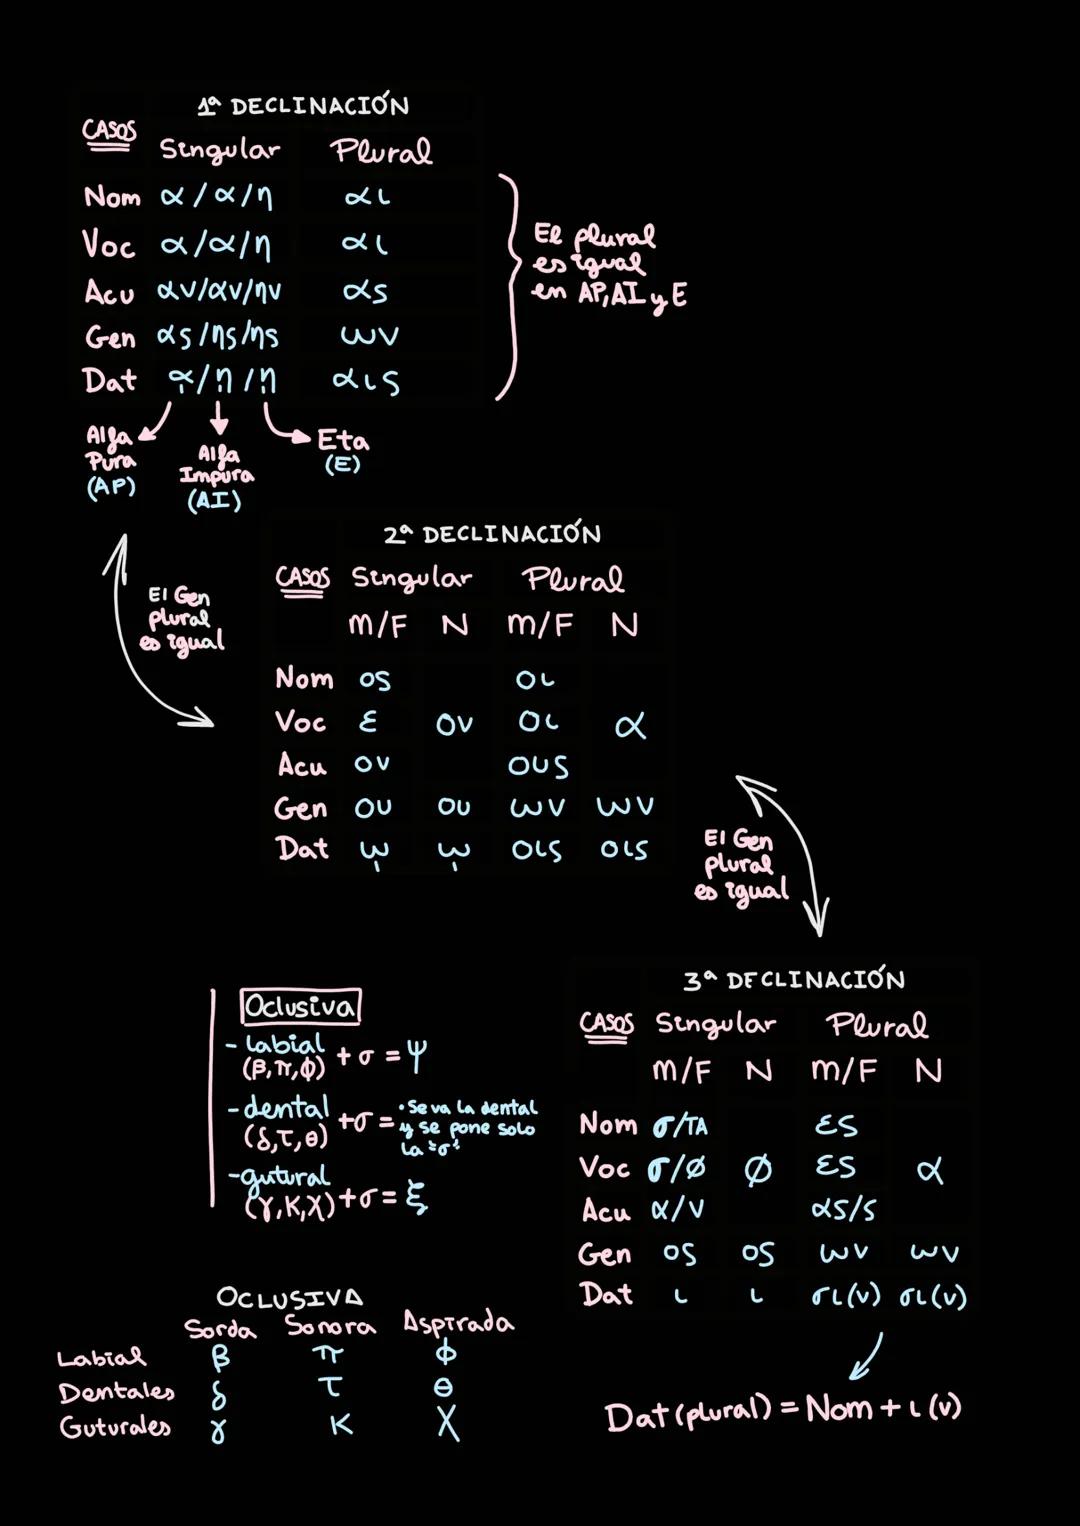 1ª DECLINACIÓN
CASOS Singular Plural
Nom α/α/η αι
Voc α/α/η αι
Acu αν/αν/ην ας
Gen ας/ης/ης ων
Dat ᾳ/ῃ/ῃ αις
El plural
es igual
en AP, AI y E
Alfa
Pura
(AP)
Alfa
Impura
(AI)
Eta
(E)
2ª DECLINACIÓN
CASOS Singular Plural
M/F N M/F N
Nom ος οι
Voc ε ον οι α
Acu ον ους
Gen ου ου ων ων
Dat ῳ ῳ οις οις
El Gen
plural
es igual
El Gen
plural
es igual
3ª DECLINACIÓN
CASOS Singular Plural
M/F N M/F N
Nom σ/TA ες
Voc σ/Ø Ø ες α
Acu α/ν ας/ς
Gen ος ος ων ων
Dat ι ι σι(ν) σι(ν)
Dat (plural) = Nom + ι (ν)
Oclusiva
- labial
(β, π, φ) + σ = ψ
- dental
(δ, τ, θ) + σ = • Se va la dental
y se pone solo
la "σ"
- gutural
(γ, κ, χ) + σ = ξ
OCLUSIVA
Sorda Sonora Aspirada
Labial β π φ
Dentales δ τ θ
Guturales γ κ χ